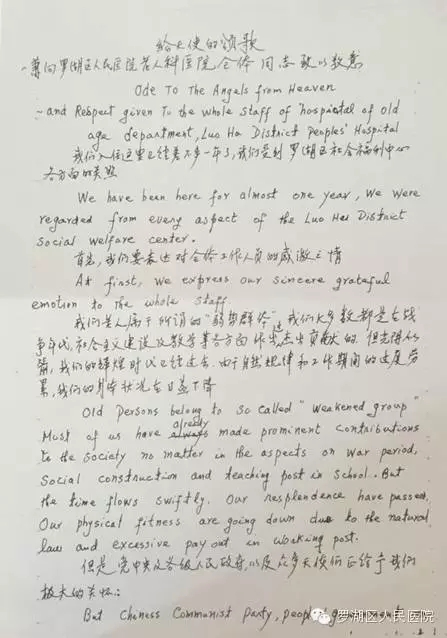 给天使的颂歌
—尊向罗湖区人民医院老人科医院全体同志致以敬意
Ode To The Angels from Heaven
- and Respect given To the whole staff of hospital of Old
age department, Luo Ho District Peoples' Hospital
我们入住这里已经差不多一年了,我们受到罗湖区社会福利中心
各方面的关照
We have been here for almost one year, We were
regarded from every aspect of the Luo Ho District
Social welfare center.
首先,我们要表达对全体工作人员的感激之情
At first, we express our sincere grateful
emotion to the whole staff.
我们老人属于所谓的“弱势群体”,我们大多数都是在战
争年代,社会主义建设及教学等各方面作出杰出贡献的.但光阴似
箭,我们的辉煌时代已经过去.由于自然规律和工作期间的过度劳
累,我们的身体状况在日益下降
Old Persons belong to so called "weakened group"
Most of us have already made prominent contributions
to the society no matter in the aspects on war period,
Social construction and teaching post in School. But
the time flows swiftly. Our resplendence have passed.
Our physical fitness are going down due to the natural
law and excessive pay out in working post.
但是党中央及各级人民政府,以及众多天使们正给予我们
极大的关怀:
But Chiness Communist Party, people
罗湖区人民医院